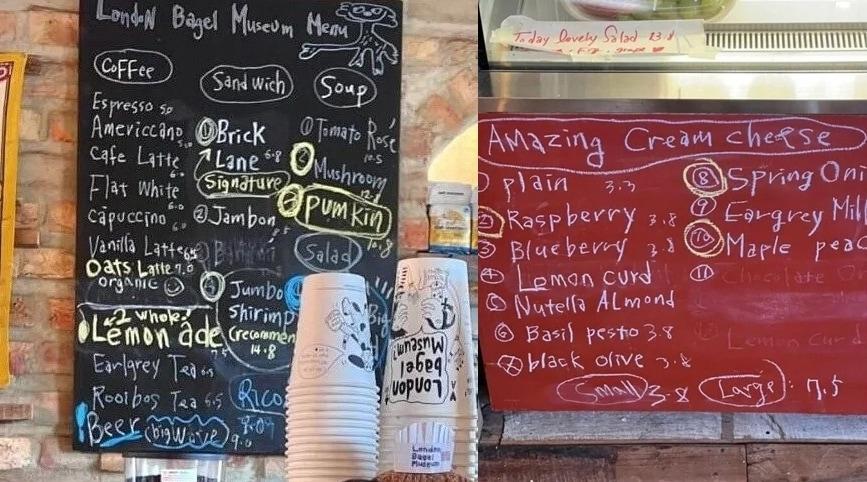 London Bagel Museum Menu
Coffee
Espresso 5.0
Americcano 5.0
Cafe Latte 6.0
Flat White 6.0
Capuccino 6.0
Vanilla Latte 6.5
Oats Latte 7.0
organic
2 whole
Lemon ade 7.5
Earlgrey Tea 6.5
Rooibos Tea 6.5
!Beer (big wave) 9.0
Sandwich
① Brick
Lane 6.8
Signature
② Jambon 8.5
④ Jumbo
shirimp
(recommen
14.8
Rico
8.0
Soup
① Tomato Rosé
10.5
② Mushroom
③ Pumkin
10.8
Salad
①
Big
London
bagel
Museum!
London
Bagel
Museum
Today Lovely Salad 13.8
Fig, grape
Amazing Cream cheese
plain 3.3
② Raspberry 3.8
③ Blueberry 3.8
④ Lemon curd
⑤ Nutella Almond
⑥ Basil pesto 3.8
⑦ black olive 3.8
⑧ Spring Oni
⑨ Eargrey Mil
⑩ Maple peac
⑪ Chocolate O
Lemon curd
Small 3.8 Large: 7.5